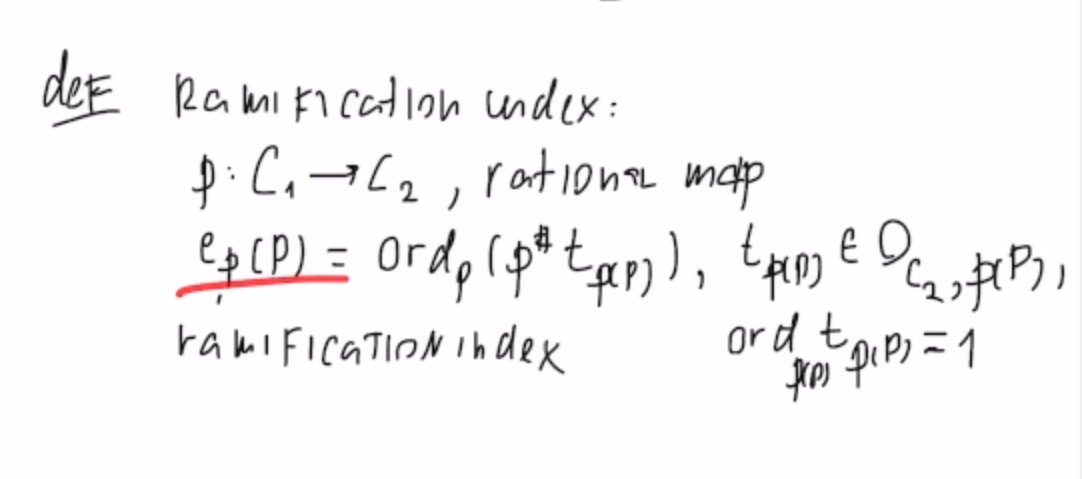 def Ramification index:
φ: C₁ → C₂, rational map
e_φ(P) = ord_P(φ* t_φ(P)), t_φ(P) ∈ O_{C₂, φ(P)},
ramification index ord_φ(P) t_φ(P) = 1